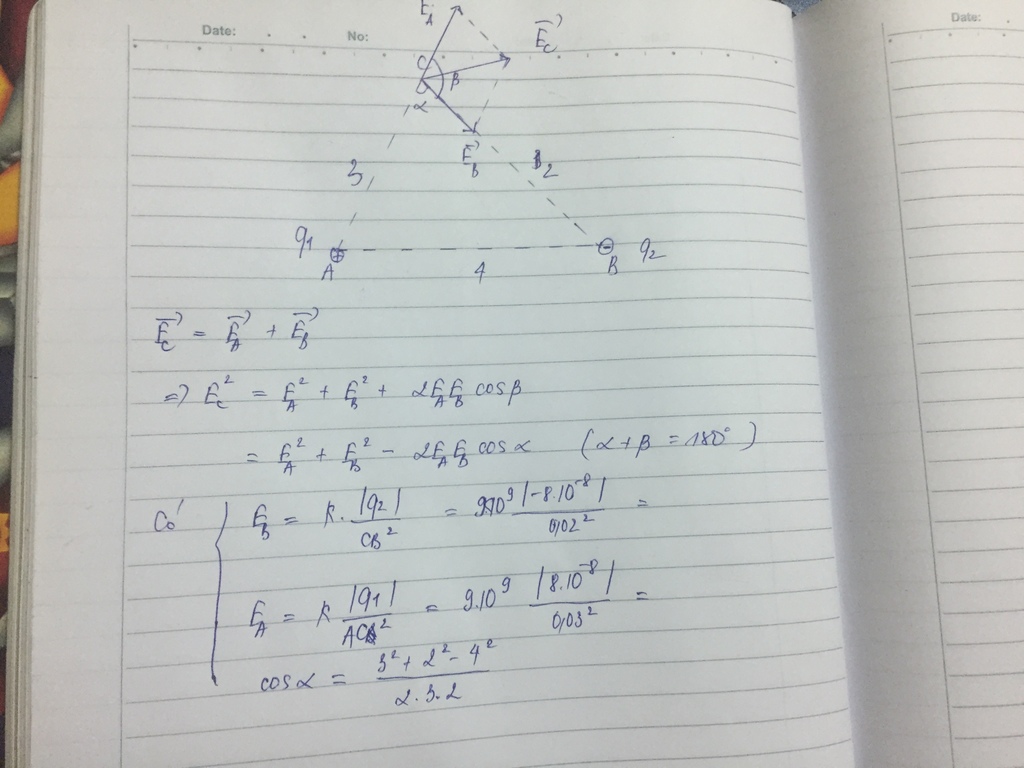 Date: No: Date:
E_A
E_C⃗
C
β
α
E_B⃗
3
2
q1 A 4 B q2
E_C⃗ = E_A⃗ + E_B⃗
=> E_C² = E_A² + E_B² + 2E_A E_B cosβ
= E_A² + E_B² - 2E_A E_B cosα (α+β = 180°)
Có { E_B = k. |q2| / CB² = 9.10⁹ |-8.10⁻⁸| / 0,02² =
E_A = k |q1| / AC² = 9.10⁹ |8.10⁻⁸| / 0,03² =
cosα = 3² + 2² - 4² / 2.3.2